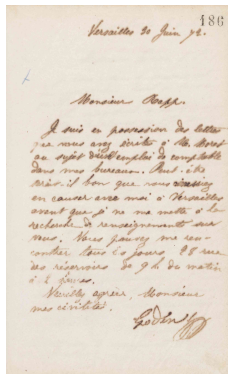 186
Versailles 30 Juin 72.
Monsieur Rapp.
Je suis en possession des lettres
que vous avez écrites à M. Moret
au sujet d'un emploi de comptable
dans mes bureaux. Peut-être
serait-il bon que vous
en causer avec moi à Versailles
avant que je ne me mette à la
recherche de renseignements sur
vous. Vous pouvez me ren-
contrer tous les jours, 28 rue
des réservoirs de 9 h. du matin
à 2 heures.
Veuillez agréer, Monsieur
mes civilités.
Godin